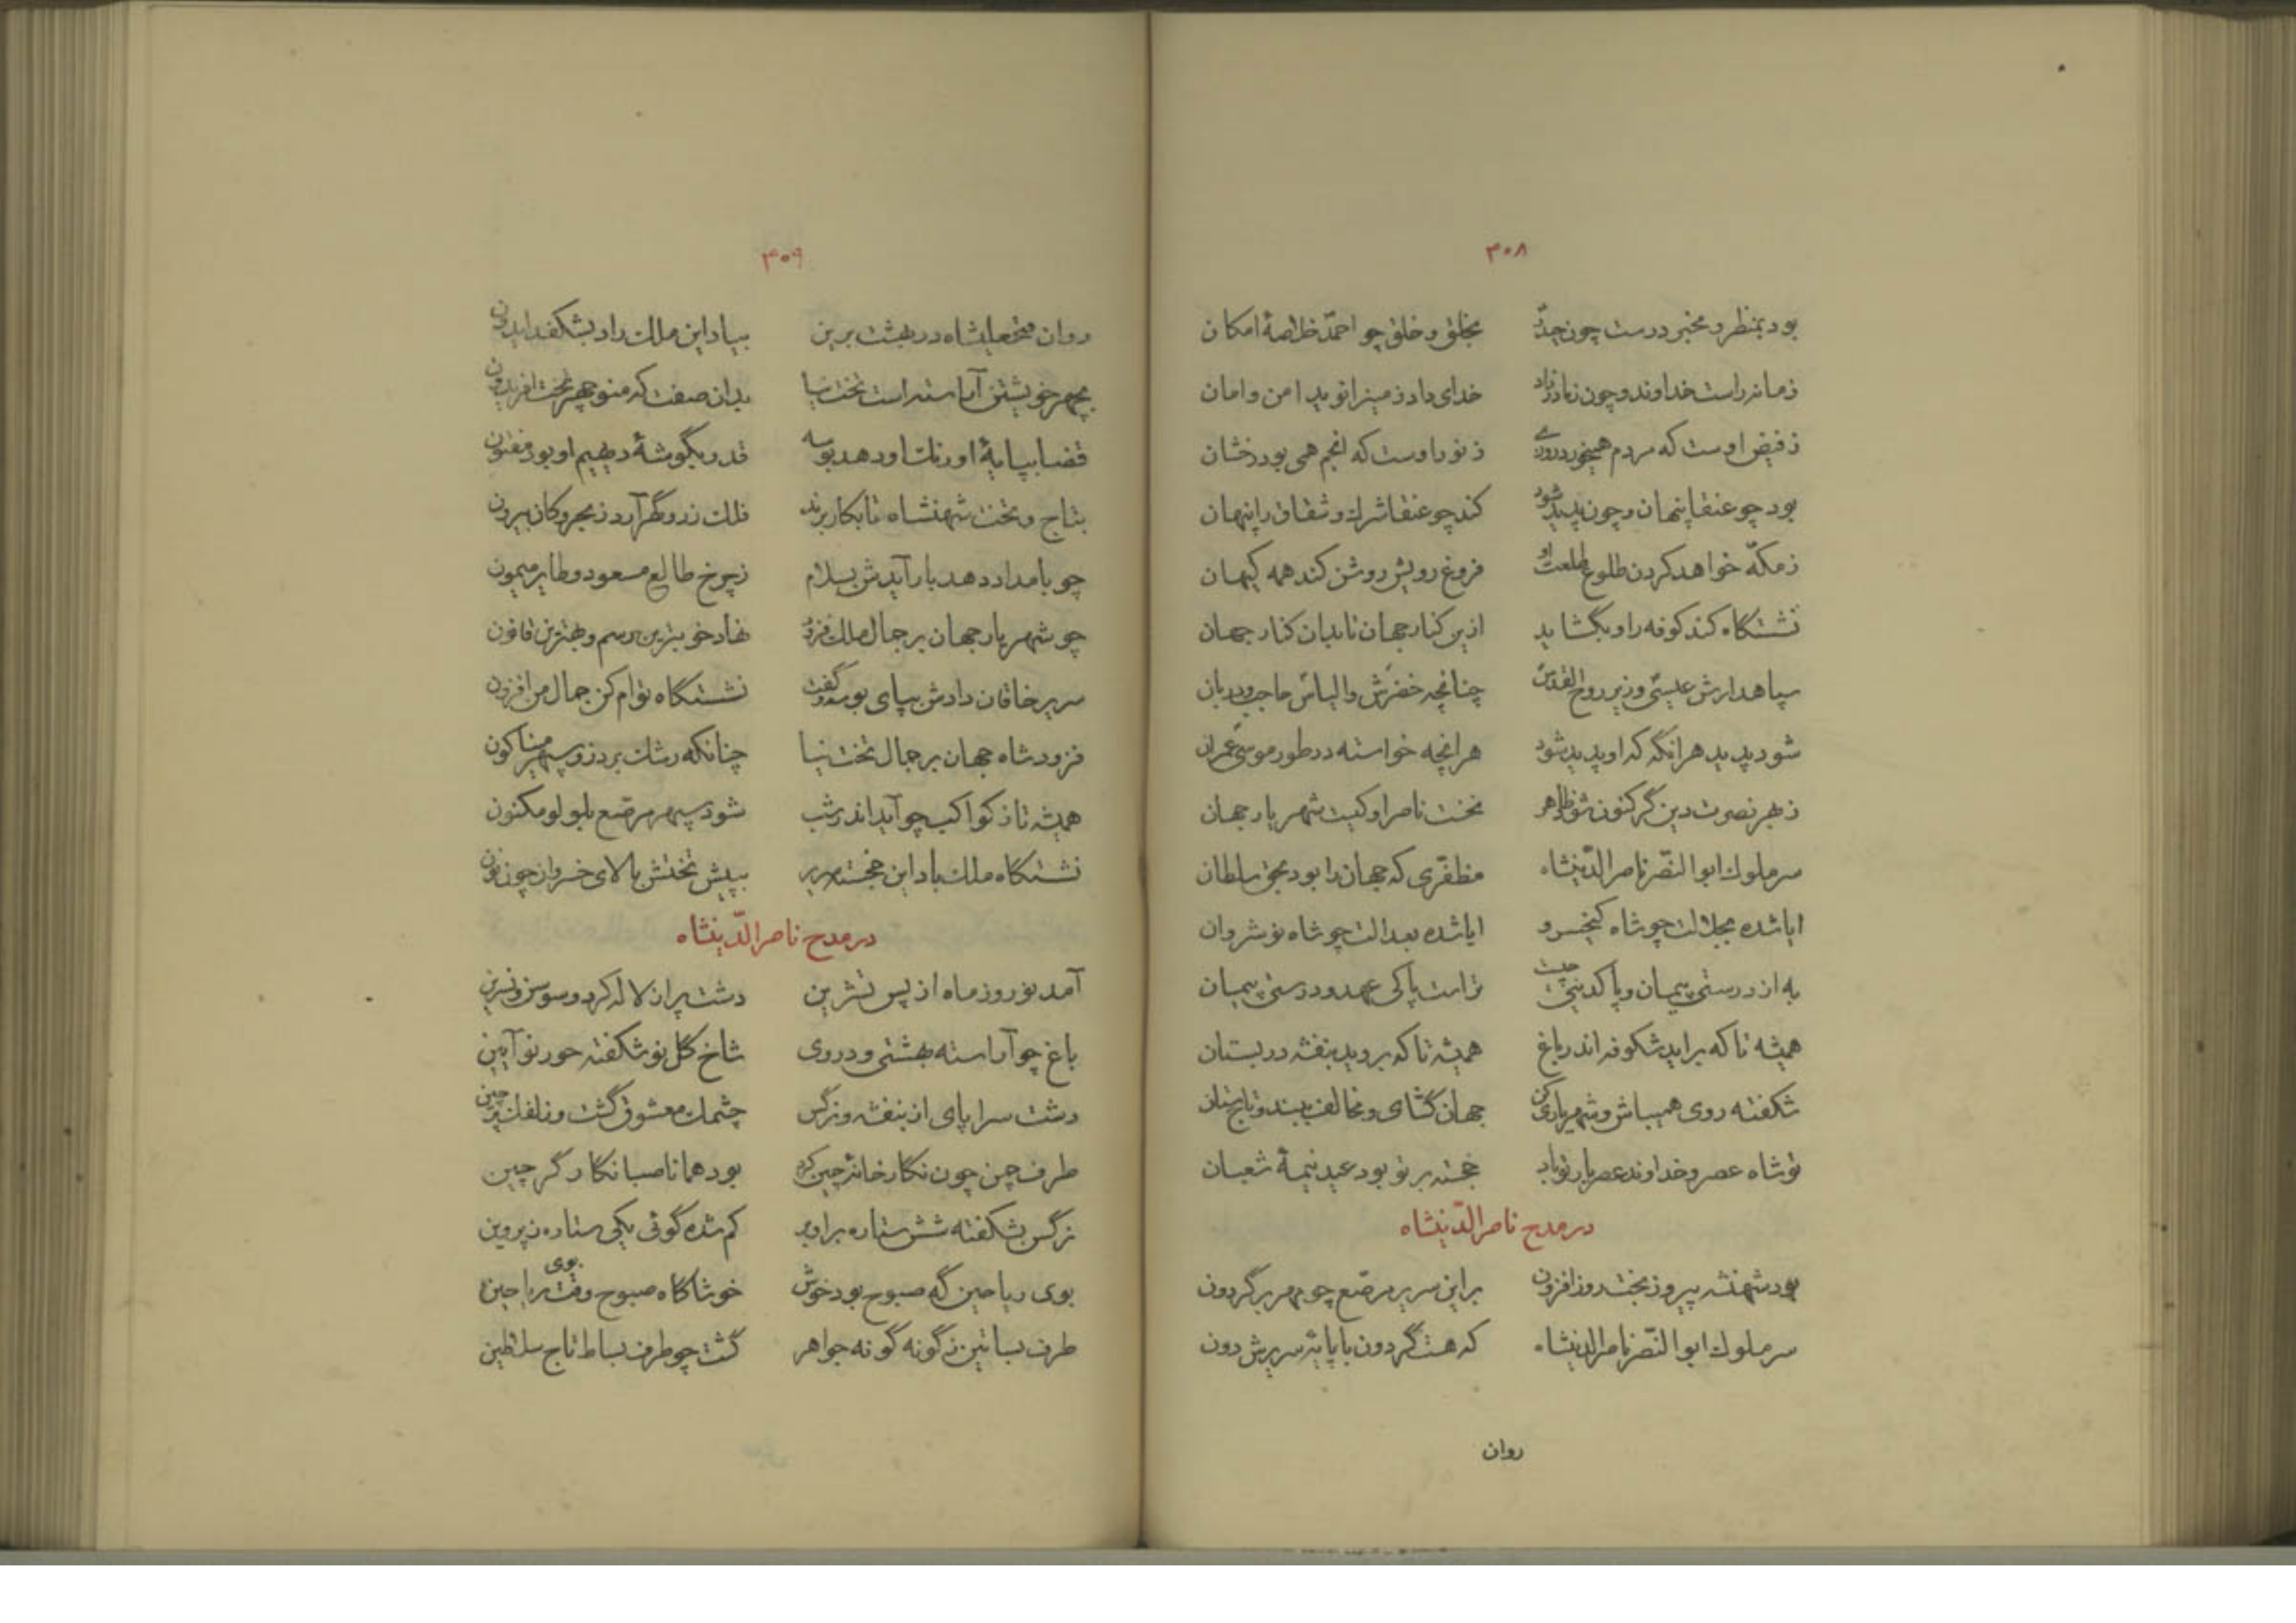 ۳۰۸
بود بمنظر و مخبر درست چون جدّ بخلق و خلق چو احمد خلاصهٔ امکان
زمانه راست خداوند و چون زمانه زاد خدای داد زمین را نوید امن و امان
ز فیض اوست که مردم همیخورد روزی ز نور اوست که انجم همی بود رخشان
بود چو عنقا پنهان و چون پدید شود کند چو عنقا شرک و شقاق را پنهان
ز مکّه خواهد کردن طلوع طلعت او فروغ رویش روشن کند همه کیهان
نشستگاه کند کوفه را و بگشاید ازین کنار جهان تا بدان کنار جهان
سپاهدارش عیسی وزیر روح القدس چنانچه خضرش و الیاس حاجب و دربان
شود پدید هر انگه که او پدید شود هر انچه خواسته در طور موسی عمران
ز بهر نصرت دین گر کنون شود ظاهر نخست ناصر او کیست شهریار جهان
سر ملوک ابوالنّصر ناصرالدّینشاه مظفّری که جهان را بود بحق سلطان
ایا شده بجلالت چو شاه کیخسرو ایا شده بعدالت چو شاه نوشروان
به از درستی پیمان و پاکدینی چیست تراست پاکی عهد و درستی پیمان
همیشه تا که براید شکوفه اندر باغ همیشه تا که بروید بنفشه در بستان
شکفته روی همیباش و شهریاری کن جهان گشای و مخالف ببند و تاج ستان
تو شاه عصر و خداوند عصر یار تو باد خجسته بر تو بود عید نیمهٔ شعبان
در مدح ناصرالدّینشاه
بود شهنشه پیروز بخت روز افزون بر این سریر مرصّع چو مهر بر گردون
سر ملوک ابوالنّصر ناصرالدینشاه که هست گردون با پایهٔ سریرش دون
روان
۳۰۹
روان فتحعلیشاه در بهشت برین بیاد این ملک راد بشکفد ایدون
بچهر خویشتن آراسته است تخت نیا بدان صفت که منوچهر تخت افریدون
قضا بپایهٔ اورنگ او دهد بوسه قدر بگوشهٔ دیهیم او بود مفتون
بتاج و تخت شهنشاه تا بکار برند فلک زر و گهر آرد ز بحر و کان بیرون
چو بامداد دهد بار آیدش بسلام ز چرخ طالع مسعود و طایر میمون
چو شهریار جهان بر جمال ملک فزود نهاد خوبترین رسم و بهترین قانون
سریر خاقان دادش بپای بوسه و گفت نشستگاه توام کن جمال من افزون
فزود شاه جهان بر جمال تخت نیا چنانکه رشک برد زو سپهر میناگون
همیشه تا ز کواکب چو آید اندر شب شود سپهر مرصّع بلولو مکنون
نشستگاه ملک باد این خجسته سریر بپیش تختش بالای خسروان چون نون
در مدح ناصرالدّینشاه
آمد نوروز ماه از پس تشرین دشت پر از لاله کرد و سوسن و نسرین
باغ چو آراسته بهشتی و در وی شاخ گل نو شکفته حور نو آیین
دشت سراپای از بنفشه و نرگس چشمک معشوق گشت و زلفک پر چین
طرف چمن چون نگارخانهٔ چین کرد بود همانا صبا نگارگر چین
نرگس بشکفته شش ستاره براورد کم شده گوئی یکی ستاره ز پروین
بوی ریاحین گه صبوح بود خوش خوشا گاه صبوح وقت بوی ریاحین
طرف بساتین ز گونه گونه جواهر گشت چو طرف بساط تاج سلاطین